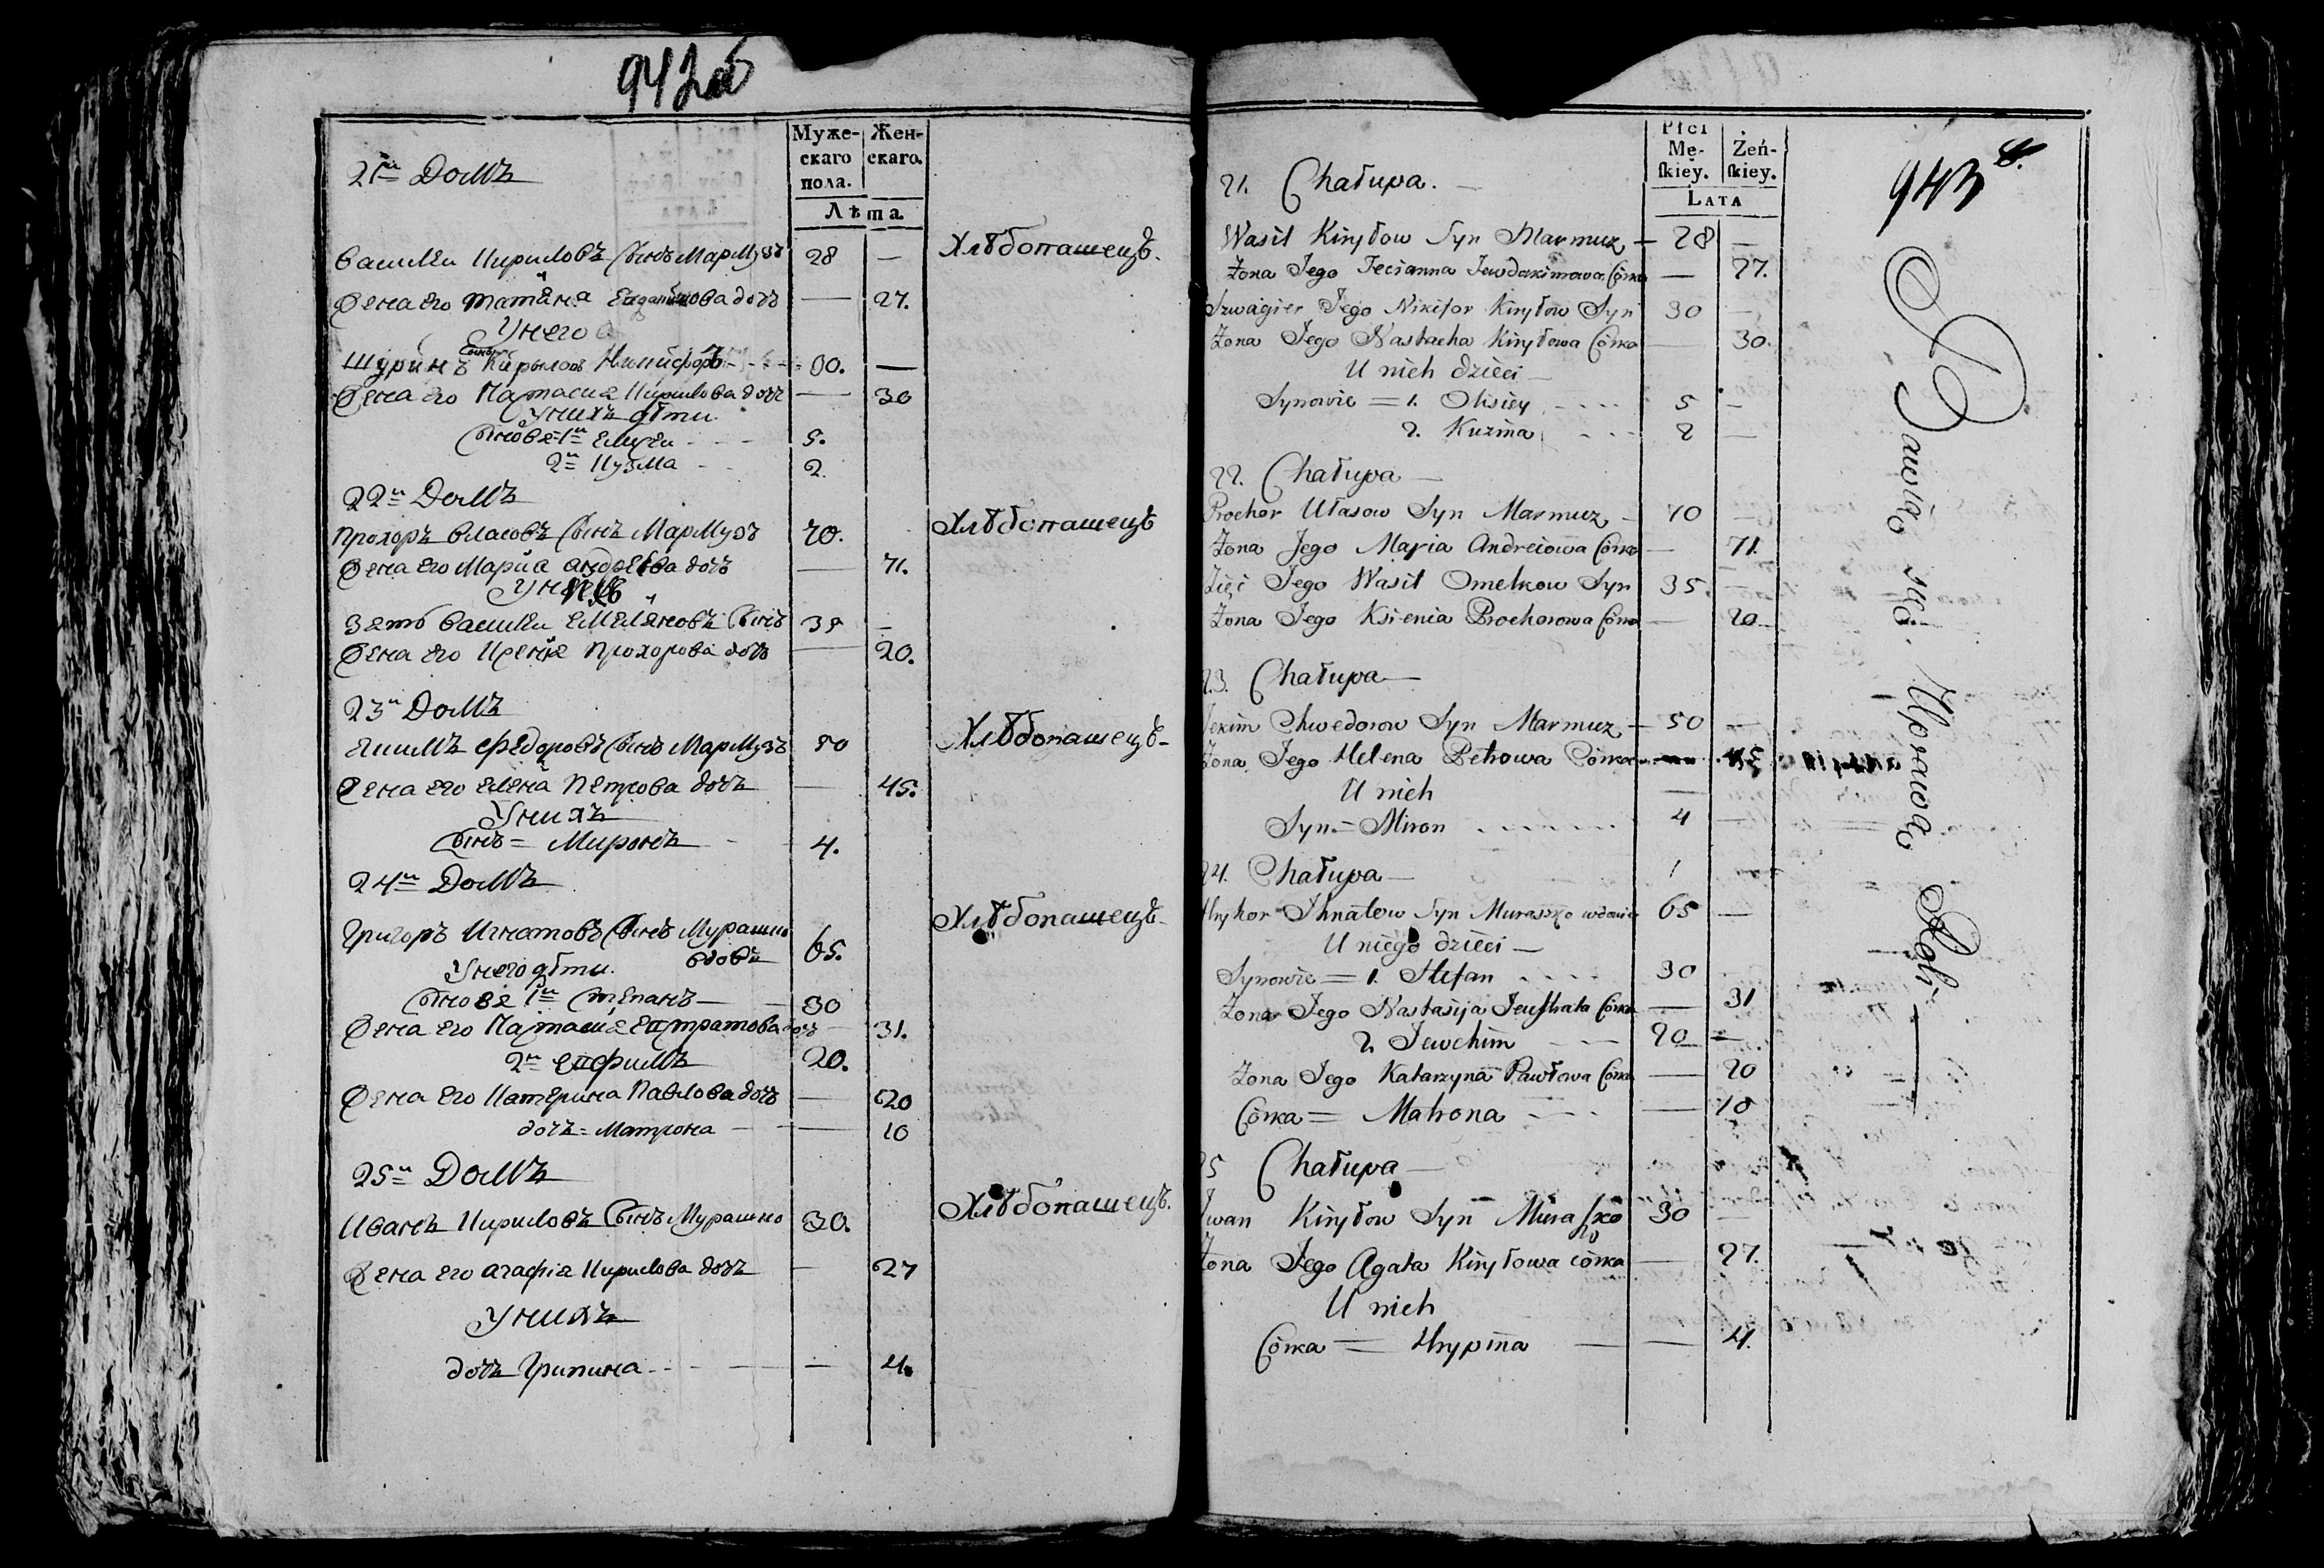 942об
Муже-
скаго
пола.
Жен-
скаго.
Лѣта.
21й Домъ
Василей Кириловъ Сынъ Мармузъ 28 — Хлѣбопашецъ.
Жена его Татiяна Евдокимова дочь — 27.
У него
Шуринъ Кирыловъ Сынъ Никифоръ 30. —
Жена его Настасия Кирилова дочь — 30
У нихъ дѣти
Сыновья 1й Елисей 5.
2й Кузма 2.
22й Домъ
Прохоръ Власовъ Сынъ Мармузъ 70. Хлѣбопашецъ
Жена его Мариа андреева дочь — 71.
Зять Василей Емеляновъ Сынъ 35 —
Жена его Ксения Прохорова дочь — 20.
23й Домъ
Якимъ Федоровъ Сынъ Мармузъ 50 Хлѣбопашецъ
Жена его Елена Петрова дочь — 45.
У нихъ
Сынъ = Миронъ 4.
24й Домъ
Григоръ Игнатовъ Сынъ Мурашко 65. Хлѣбопашецъ
вдовъ
У него дѣти.
Сыновя 1й Степанъ — 30
Жена его Настасия Евстратова дочь — 31.
2й Евфимъ 20.
Жена его Катерина Павлова дочь — 20
дочь = Матрона — 10
25й Домъ
Иванъ Кириловъ Сынъ Мурашко 30. Хлѣбопашецъ.
Жена его агафiя Кирилова дочь — 27
У нихъ
дочь Грипина — 4.
Płci
Mę-
skiey.
Żeń-
skiey.
Lata
943
21. Chałupa. —
Wasil Kiryłow Syn Marmuz — 28 —
Zona Jego Tecianna Jewdakimowa Córka — 27.
Szwagier Jego Nikifor Kiryłow Syn 30 —
Zona Jego Nastacha Kiryłowa Córka — 30.
U nich dzieci —
Synowie = 1. Olisiey 5 —
2. Kuzma 2 —
22. Chałupa —
Prochor Ułasow Syn Marmuz — 70 —
Zona Jego Maria Andreiowa Córka — 71.
Zięć Jego Wasil Omelkow Syn 35. —
Zona Jego Ksienia Prochorowa Córka — 20
23. Chałupa —
Jekim Chwedorow Syn Marmuz — 50 —
Zona Jego Helena Petrowa Córka
U nich —
Syn = Miron 4 —
24. Chałupa —
Hryhor Ihnatow Syn Muraszko wdowiec 65 —
U niego dzieci —
Synowie = 1. Stefan 30
Zona Jego Nastasija Jewstrata Córka — 31
2. Jewchim 20 —
Zona Jego Katarzyna Pawłowa Córka — 20
Córka = Matrona — 10
25 Chałupa —
Iwan Kiryłow Syn Muraszko 30 —
Zona Jego Agata Kiryłowa Córka — 27.
U nich
Córka = Hrypina — 4.